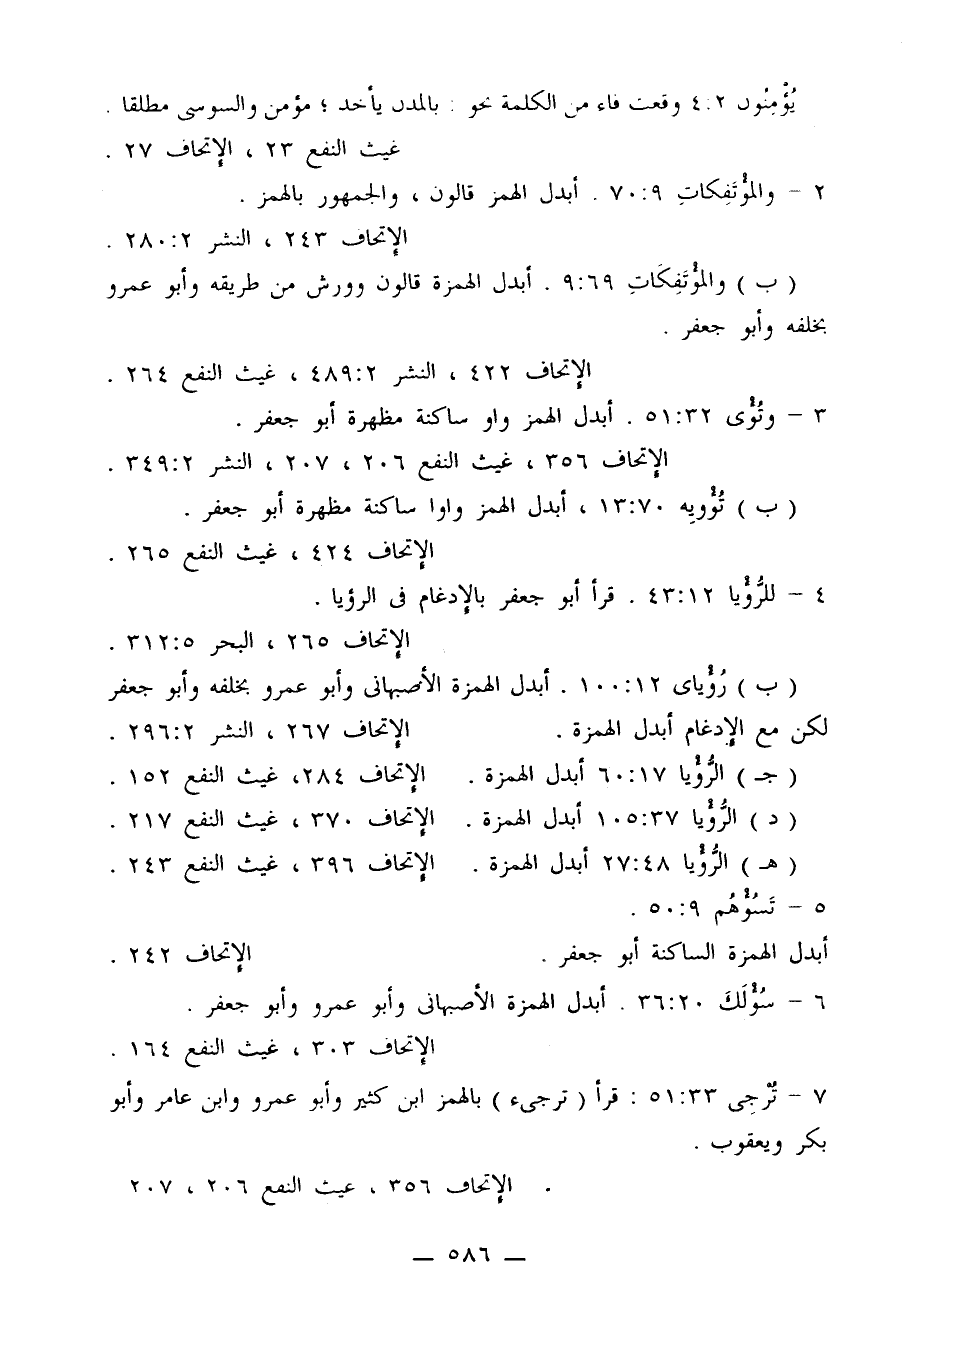 يُؤْمِنُون ٤:٢ وقعت فاء من الكلمة نحو : بالمدن يأخد ؛ مؤمن والسوسى مطلقا .
غيث النفع ٢٣ ، الإتحاف ٢٧ .
٢ – والمُؤْتَفِكاتِ ٧٠:٩ . أبدل الهمز قالون ، والجمهور بالهمز .
الإتحاف ٢٤٣ ، النشر ٢٨٠:٢ .
( ب ) والمُؤْتَفِكَاتِ ٩:٦٩ . أبدل الهمزة قالون وورش من طريقه وأبو عمرو
بخلفه وأبو جعفر .
الإتحاف ٤٢٢ ، النشر ٤٨٩:٢ ، غيث النفع ٢٦٤ .
٣ – وتُؤْى ٥١:٣٢ . أبدل الهمز واو ساكنة مظهرة أبو جعفر .
الإتحاف ٣٥٦ ، غيث النفع ٢٠٦ ، ٢٠٧ ، النشر ٣٤٩:٢ .
( ب ) تُؤْوِيِه ١٣:٧٠ ، أبدل الهمز واوا ساكنة مظهرة أبو جعفر .
الإتحاف ٤٢٤ ، غيث النفع ٢٦٥ .
٤ – للرُّؤْيا ٤٣:١٢ . قرأ أبو جعفر بالإدغام فى الرؤيا .
الإتحاف ٢٦٥ ، البحر ٣١٢:٥ .
( ب ) رُؤْياى ١٠٠:١٢ . أبدل الهمزة الأصبهانى وأبو عمرو بخلفه وأبو جعفر
لكن مع الإدغام أبدل الهمزة . الإتحاف ٢٦٧ ، النشر ٢٩٦:٢ .
( جـ ) الرُّؤْيا ٦٠:١٧ أبدل الهمزة . الإتحاف ٢٨٤، غيث النفع ١٥٢ .
( د ) الرُّؤْيا ١٠٥:٣٧ أبدل الهمزة . الإتحاف ٣٧٠ ، غيث النفع ٢١٧ .
( هـ ) الرُّؤْيا ٢٧:٤٨ أبدل الهمزة . الإتحاف ٣٩٦ ، غيث النفع ٢٤٣ .
٥ – تَسُؤْهُم ٥٠:٩ .
أبدل الهمزة الساكنة أبو جعفر . الإتحاف ٢٤٢ .
٦ – سُؤْلَكَ ٣٦:٢٠ . أبدل الهمزة الأصبهانى وأبو عمرو وأبو جعفر .
الإتحاف ٣٠٣ ، غيث النفع ١٦٤ .
٧ – تُرْجِى ٥١:٣٣ : قرأ ( ترجىء ) بالهمز ابن كثير وأبو عمرو وابن عامر وأبو
بكر ويعقوب .
. الإتحاف ٣٥٦ ، عيث النفع ٢٠٦ ، ٢٠٧
— ٥٨٦ —